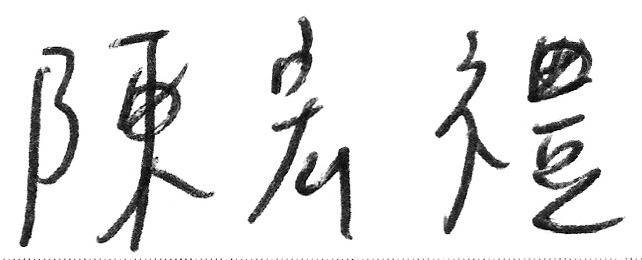 陳宏禮